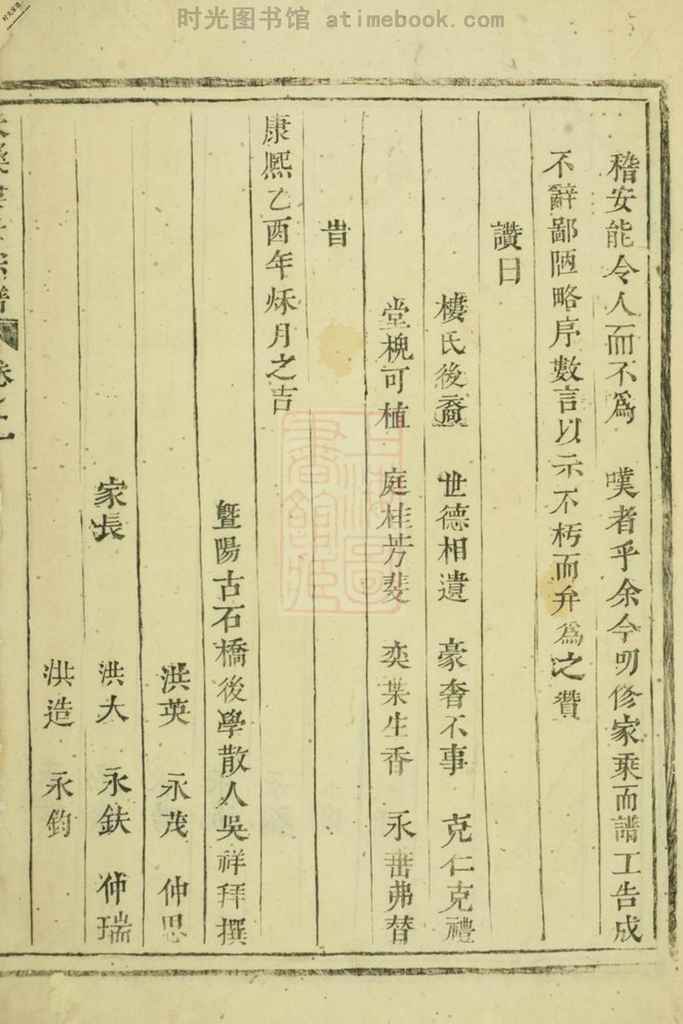 时光图书馆 atimebook.com
稽安能令人而不爲 嘆者乎余今叨修家乘而譜工告成
不辭鄙陋略序數言以示不朽而弁爲之贊
讚曰
樓氏後裔 世德相遺 豪奢不事 克仁克禮
堂槐可植 庭桂芳斐 奕葉生香 永 弗替
旹
康熙乙酉年秌月之吉
曁陽古石橋後學散人吳祥拜撰
洪英 永茂 仲思
家長 洪大 永鈇 仲瑞
洪造 永鈞
宗譜 卷之一